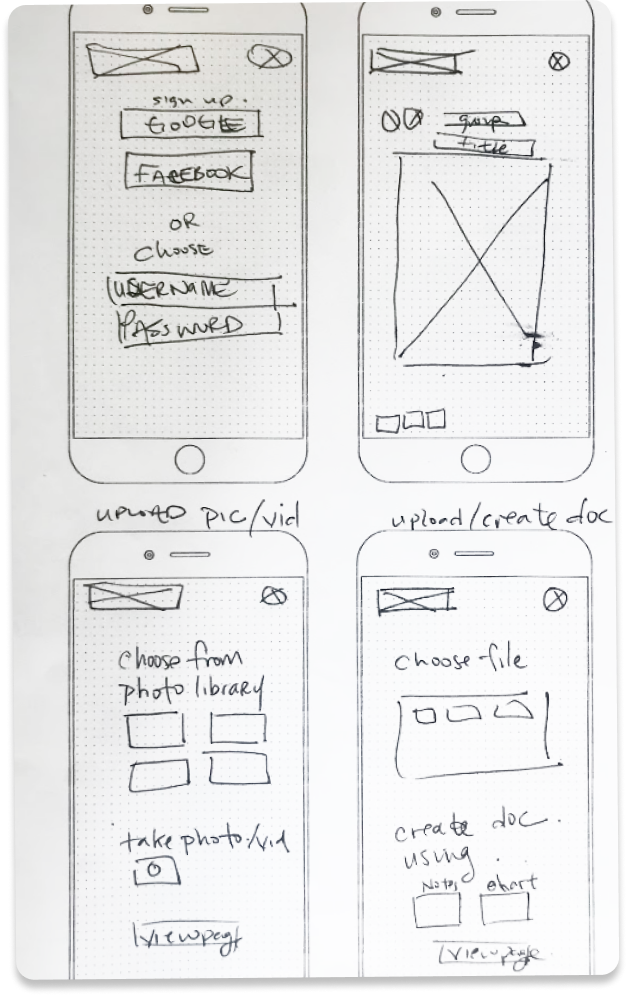 sign up.
GOOGLE
FACEBOOK
OR
CHOOSE
USERNAME
PASSWORD
group
title
UPLOAD PIC/vid
choose from
photo library
take photo/vid
viewpage
upload/create doc
choose file
create doc.
using.
Notes chart
viewpage